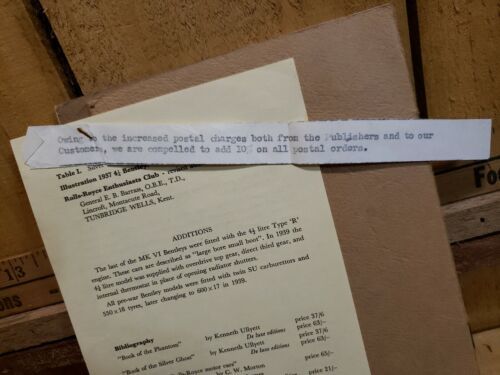 Owing to the increased postal charges both from the Publishers and to our
Customers, we are compelled to add 10% on all postal orders.
Table I.
Illustration 1937 4¼ Bentley,
Rolls-Royce Enthusiasts Club -
General E. B. Barrass, O.B.E., T.D.,
Lincroft, Montacute Road,
TUNBRIDGE WELLS, Kent.
ADDITIONS
The last of the MK VI Bentleys were fitted with the 4½ litre Type 'R'
engine. These cars are described as "large bore small boot". In 1939 the
4¼ litre model was supplied with overdrive top gear, direct third gear, and
internal thermostat in place of opening radiator shutters.
All pre-war Bentley models were fitted with twin SU carburettors and
550 x 18 tyres, later changing to 600 x 17 in 1939.
Bibliography
"Book of the Phantoms" by Kenneth Ullyett price 37/6
De luxe editions price 63/-
"Book of the Silver Ghost" by Kenneth Ullyett price 37/6
De luxe editions price 63/-
Rolls-Royce motor cars" price 63/-
by C. W. Morton
price 21/-
Foo
13
ons